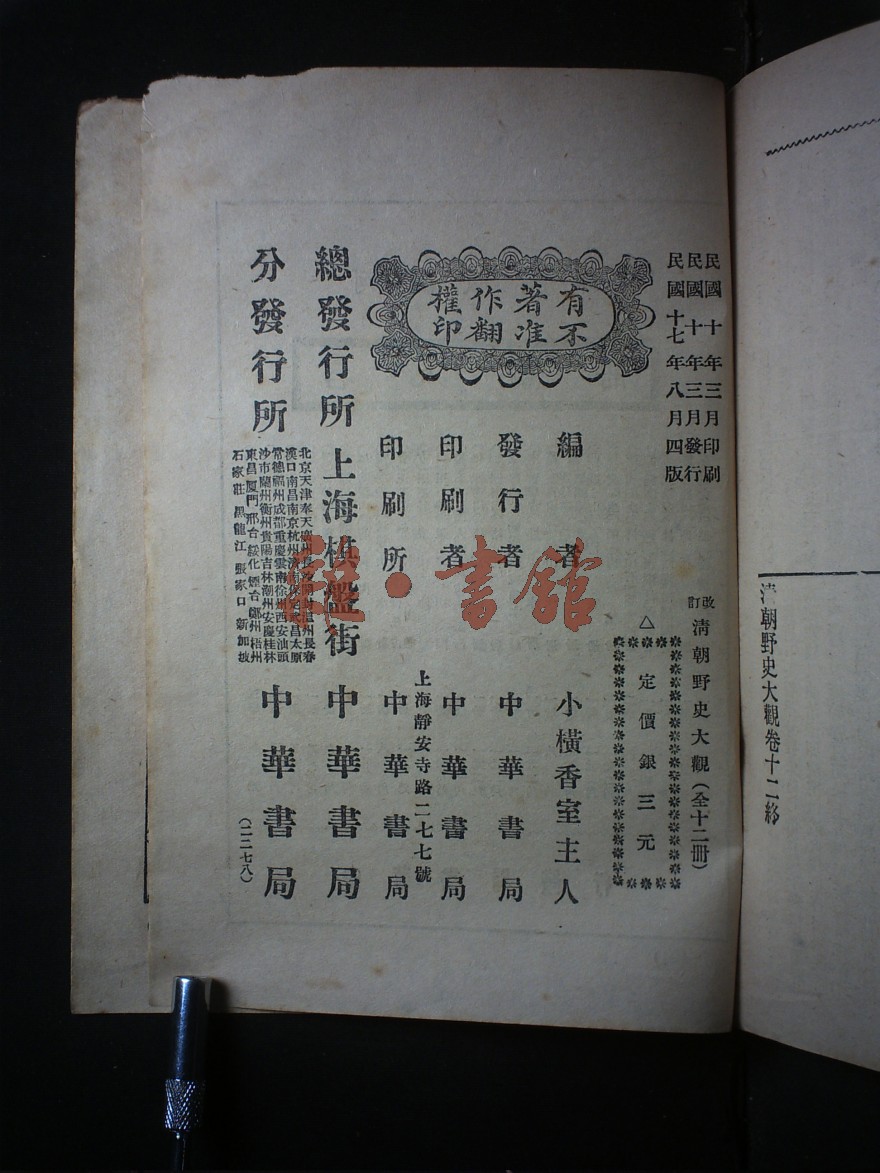 清朝野史大觀卷十二終
民國十年三月印刷
民國十年三月發行
民國十七年八月四版
改訂
清朝野史大觀（全十二冊）
△定價銀三元
有著作權
不准翻印
編者 小橫香室主人
發行者 中華書局
印刷者 中華書局
上海靜安寺路二七七號
印刷所 中華書局
總發行所 上海棋盤街 中華書局
分發行所
常德福州成都重慶雲南徐州西安汕頭
沙市蘭州衡州貴陽吉林潮州安慶桂林
東昌廈門邢台綏化煙台鄭州梧州
石家莊 黑龍江 張家口 新加坡
中華書局
（二二七八）
書館